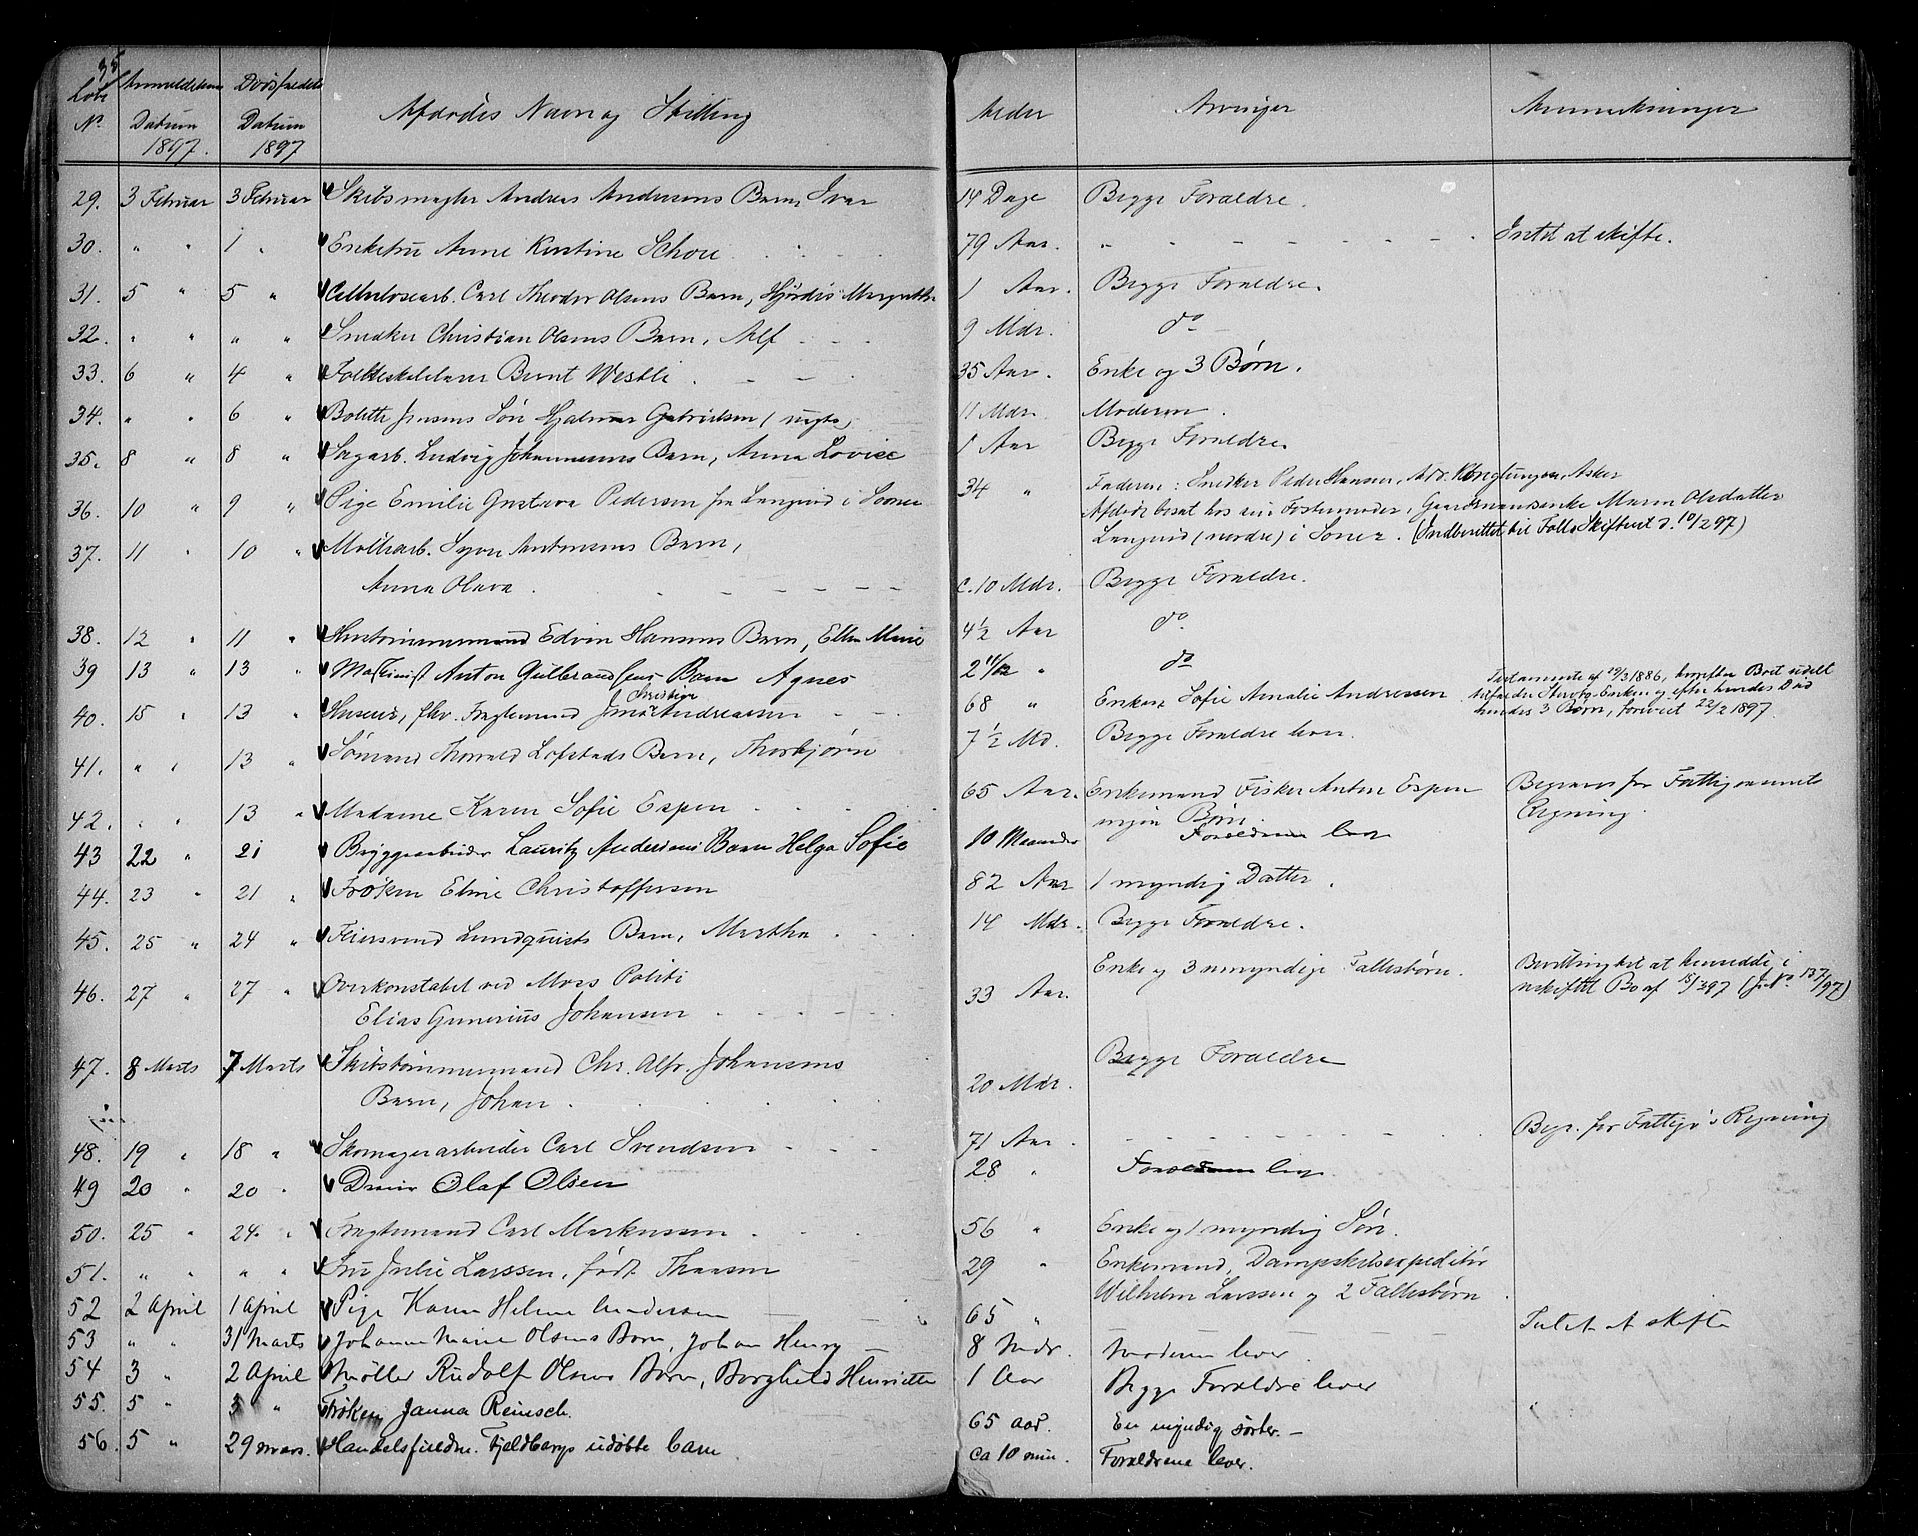 35
Løbe Anmeldelsens Dødsfaldets
Afdødes Navn og Stilling Alder Arvinger Anmærkninger
No Datum Datum
1897. 1897
29. 3 Februar 3 Februar Skibsmægler Andreas Andersens Barn, Ivar 14 Dage Begge Forældre.
30. " " 1 " Enkefru Anne Kirstine Schou 79 Aar. " - - - - - - Intet at skifte.
31. 5 " 5 " Cellulosearb. Carl Theodor Olsens Barn, Hjördis Margrethe 1 Aar. Begge Forældre.
32. " " " " Snedker Christian Olsens Barn, Alf 9 Mdr. do
33. 6 " 4 " Folkeskolelærer Bernt Westli 35 Aar. Enke og 3 Børn.
34. " " 6 " Bolette Jensens Søn Hjalmar Gabrielsen (uægte) 11 Mdr. Moderen.
35. 8 " 8 " Sagarb. Ludvig Johannesens Barn, Anna Lovise 1 Aar Begge Forældre.
36. 10 " 9 " Pige Emilie Gustava Pedersen fra Langerud i Sooner 34 " Faderen: Snedker Peder Hansen, Adr. Asker
Afdøde bosat hos sin Fostermoder, Gaardmandsenke Maren Olsdatter
Langerud (nordre) i Soner. (Indberettet til Follo Skifteret d. 10/2 97)
37. 11 " 10 " Møllearb. Syver Antonsens Barn,
Anna Olava c. 10 Mdr. Begge Forældre.
38. 12 " 11 " Edvin Hansens Barn, Ellen Marie 4½ Aar do
39 13 " 13 " Maskinist Anton Gulbrandsens Barn Agnes 2 11/12 " do
40. 15 " 13 " Huseier, fhv. Fragtemand Jens Christian Andreassen 68 " Enken Sofie Amalie Andreassen Testamente af 19/3 1886, hvorefter Boet udelt
tilfalder Enken og efter hendes Død
hendes 3 Børn, forevist 22/2 1897.
41. " " 13 " Sømand Thorvald Lofstads Barn, Thorbjørn 7½ Md. Begge Forældre lever.
42. " " 13 " Madame Karen Sofie Espen 65 Aar. Enkemand Fisker Anton Espen Begraves for Fattigvæsenets
ingen Børn. Regning
43 22 " 21 Bryggearbeider Lauritz Andersens Barn Helga Sofie 10 Maaneder Forældrene lever
44. 23 " 21 " Frøken Eline Christoffersen 82 Aar 1 myndig Datter.
45. 25 " 24 " Feiersvend Lundquists Barn, Martha 14 Mdr. Begge Forældre.
46. 27 " 27 " Overkonstabel ved Moss Politi
Elias Gunerius Johansen 33 Aar. Enke og 3 umyndige Fællesbørn. Bevilling til at hensidde i
uskiftet Bo af 15/3 97 (J. No 137/97)
47. 8 Marts 7 Marts Skibstømmermand Chr. Alfr. Johansens
Barn, Johan 20 Mdr. Begge Forældre
48. 19 " 18 " Skomagerarbeider Carl Svendsen 71 Aar. - - - - - - Begr. for Fattigv's Regning
49 20 " 20 " Olaf Olsen 28 " Forældrene lever
50. 25 " 24 " Fragtemand Carl Markussen 56 " Enke og 1 myndig Søn.
51. " " " " Fru Julie Larssen, født Thoresen 29 " Enkemand, Dampskibsexpeditør
Wilhelm Larssen og 2 Fællesbørn
52 2 April 1 April Pige Karen Helene Andersen 65 " Intet at skifte
53 " " 31 Marts Johanne Marie Olsens Barn, Johan Henry 8 Mdr. Moderen lever.
54 3 " 2 April Møller Rudolf Olsens Barn, Borghild Henriette 1 Aar Begge Forældre lever
55. 5 " 5 " Frøken Janna Reinsch. 65 aar. En myndig søster. -
56. 5 " 29 mars. Handelsfuldm. Fjeldbergs udøbte barn ca 10 min. Forældrene lever.